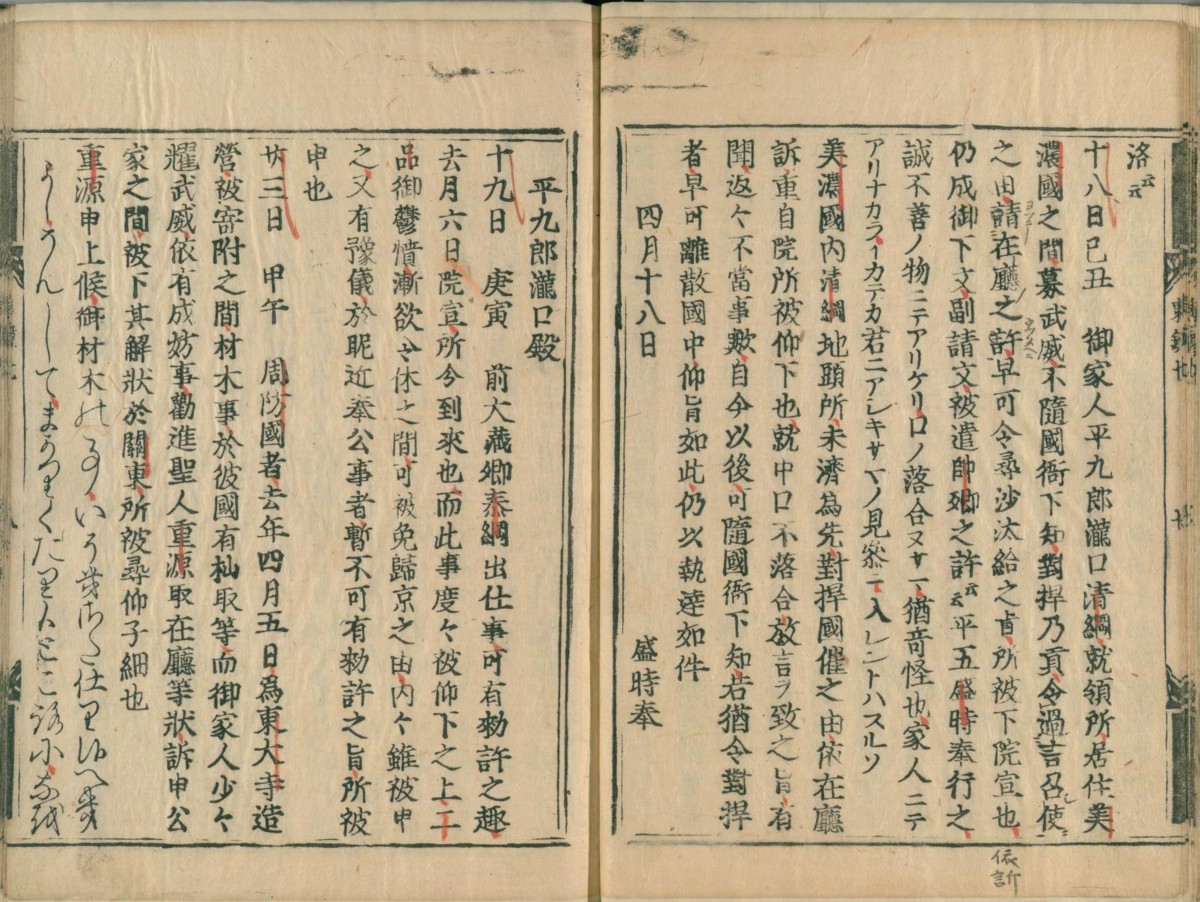 洛云云
十八日己丑　御家人平九郎瀧口清綱就領所居住美
濃國之間募武威不隨國衙下知對捍乃貢令過言召使
之由請在廳之許早可令尋沙汰給之旨所被下院宣也
仍成御下文副請文被遣帥卿之許云云平五盛時奉行之
誠不善ノ物ニテアリケリロノ落合ヌサー猶奇怪也家人ニテ
アリナカライカテカ若ニアシキサマノ見参ニ入レントハスルソ
美濃國内清綱地頭所未濟為先對捍國催之由依在廳
訴重自院所被仰下也就中口不落合放言ヲ致之旨有
聞返々不當事歟自今以後可隨國衙下知若猶令對捍
者早可離散國中仰旨如此仍以執達如件
四月十八日
盛時奉
依訴
平九郎瀧口殿
十九日　庚寅　前大藏卿泰綱出仕事可有勅許之趣
去月六日院宣所今到來也而此事度々被仰下之上二
品御鬱憤漸欲令休之間可被免歸京之由内々雖被申
之又有豫儀於昵近奉公事者暫不可有勅許之旨所被
申也
廿三日　甲午　周防國者去年四月五日爲東大寺造
營被寄附之間材木事於彼國有杣取等而御家人少々
耀武威依有成妨事勸進聖人重源取在廳等状訴申公
家之間被下其解状於關東所被尋仰子細也
重源申上候御材木の事いう